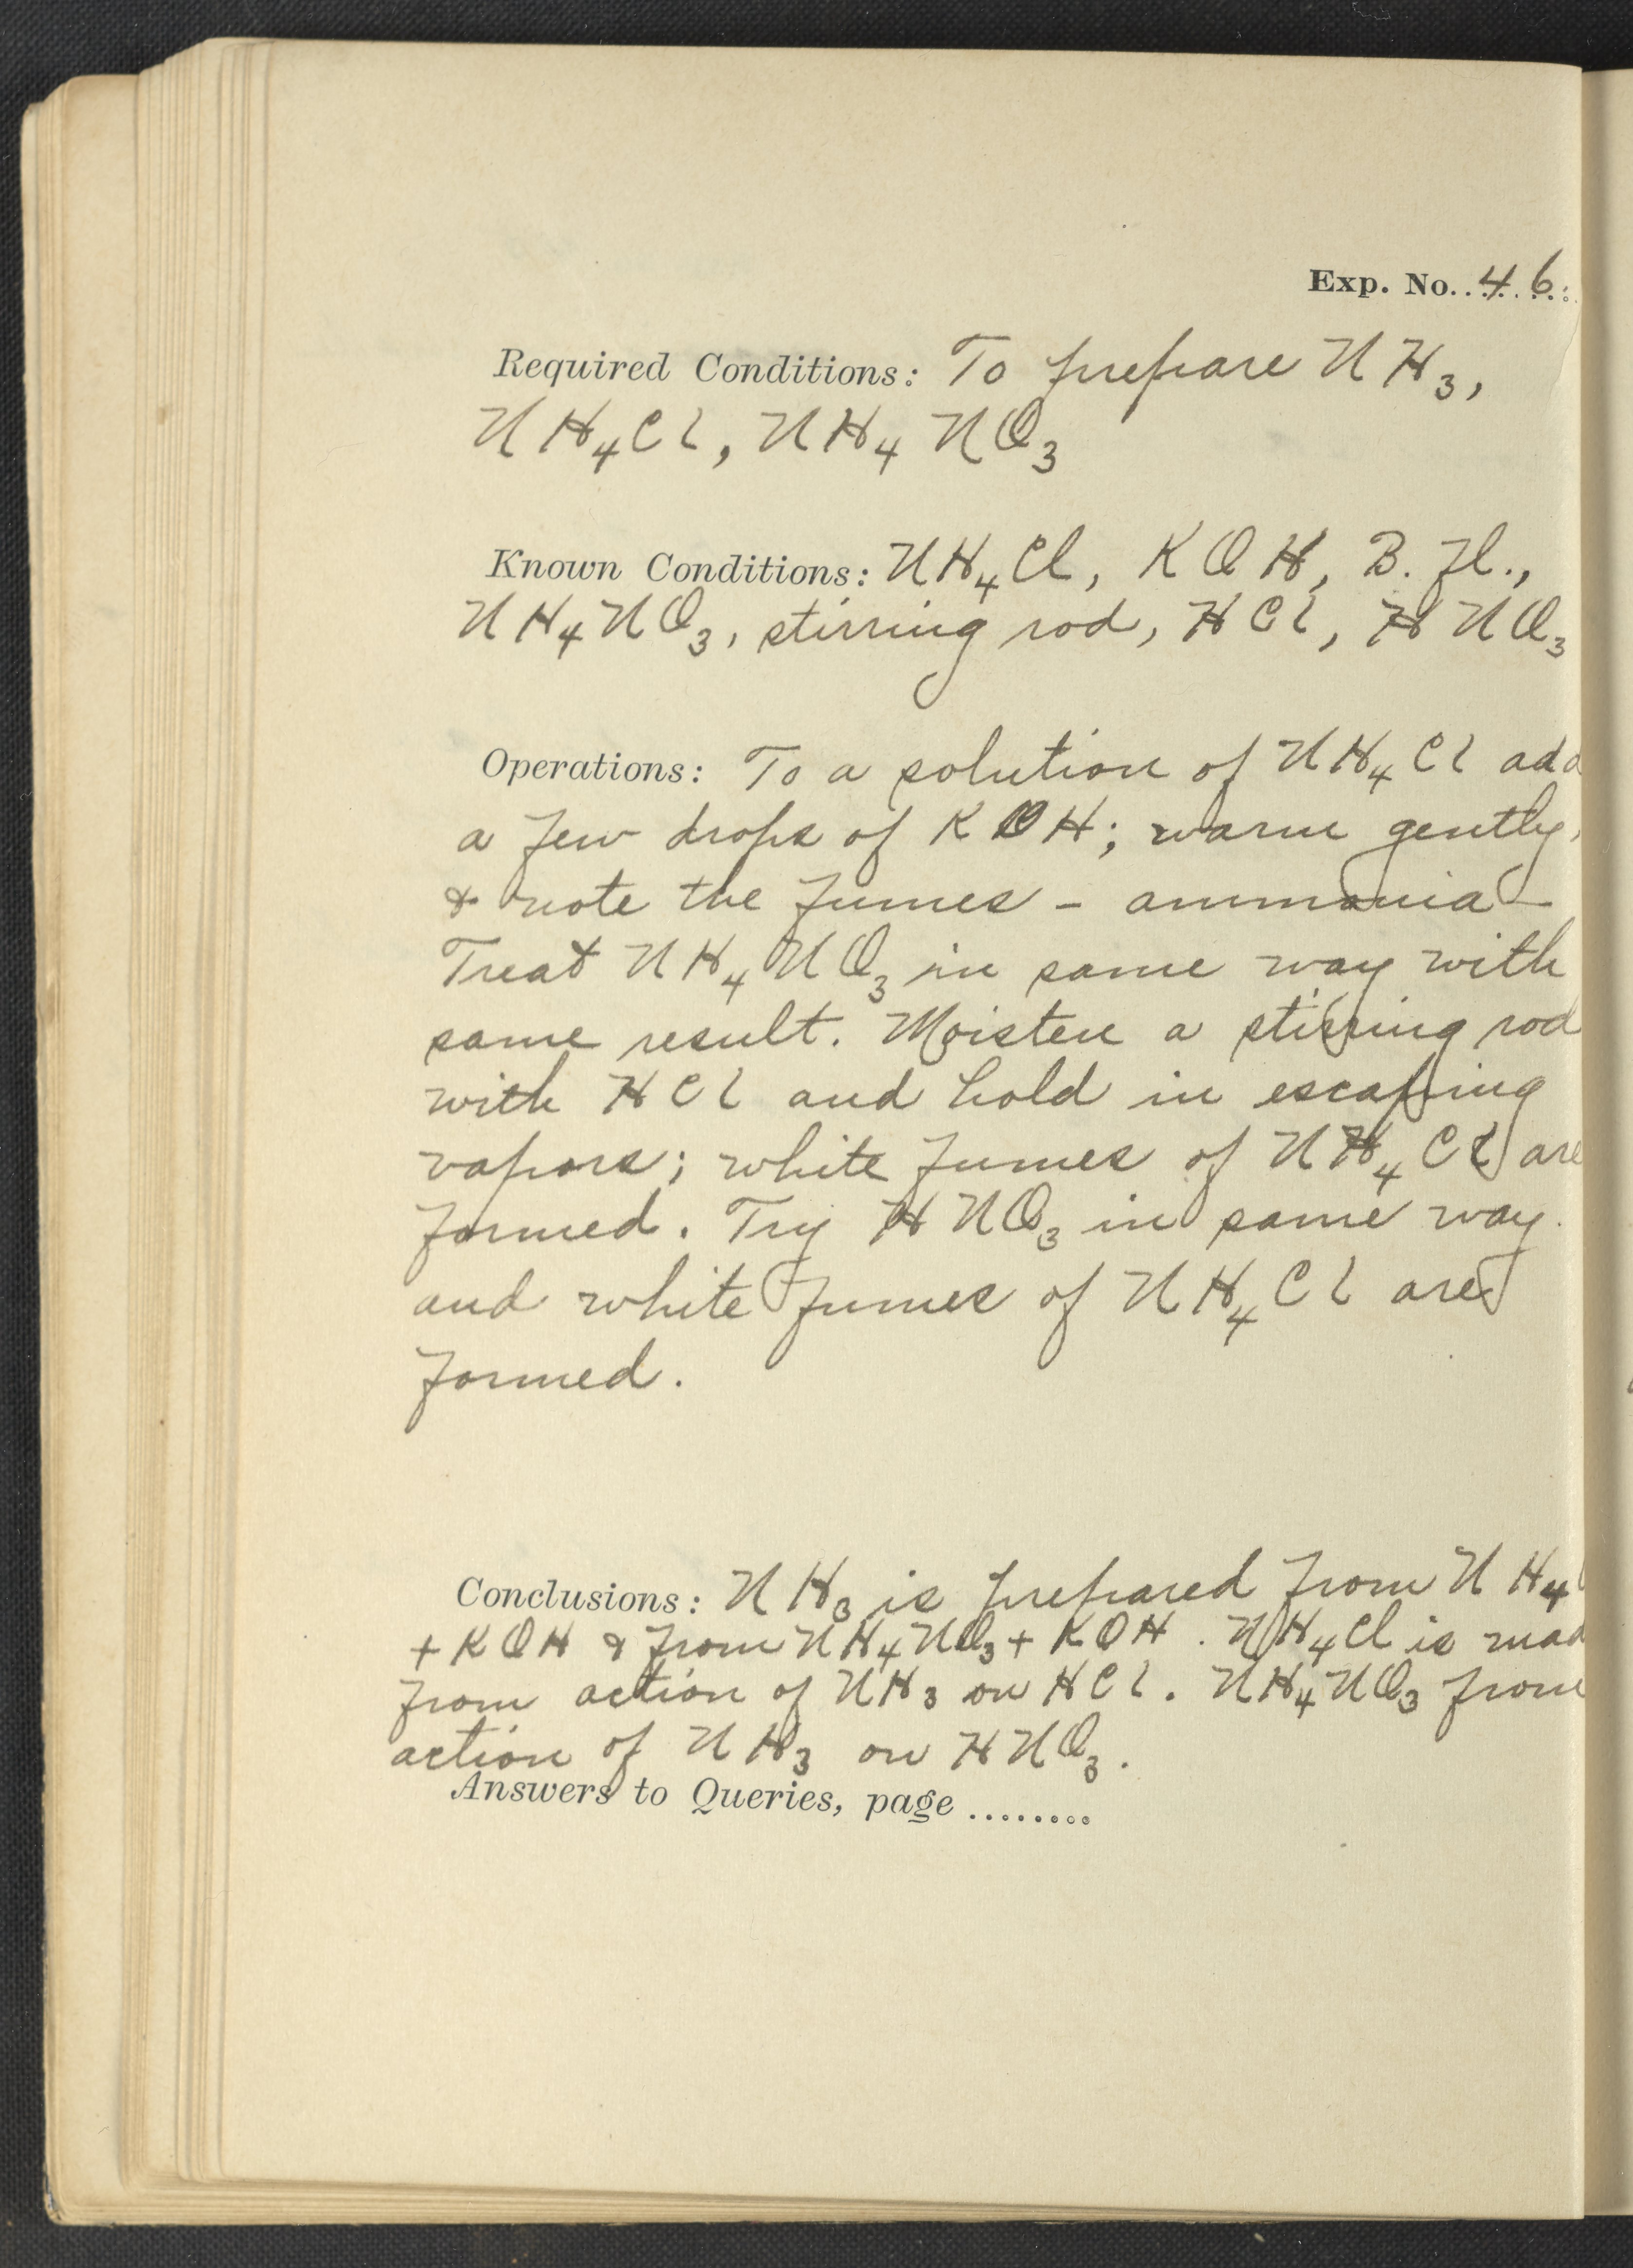 Exp. No. 46
Required Conditions: To prepare NH3,
NH4Cl, NH4NO3
Known Conditions: NH4Cl, KOH, B. Fl.,
NH4NO3, stirring rod, HCl, HNO3
Operations: To a solution of NH4Cl add
a few drops of KOH; warm gently,
& note the fumes - ammonia -
Treat NH4NO3 in same way with
same result. Moisten a stirring rod
with HCl and hold in escaping
vapors; white fumes of NH4Cl are
formed. Try HNO3 in same way.
and white fumes of NH4Cl are
formed.
Conclusions: NH3 is prepared from NH4
+ KOH & from NH4NO3 + KOH. NH4Cl is mad
from action of NH3 on HCl. NH4NO3 from
action of NH3 on HNO3.
Answers to Queries, page ........